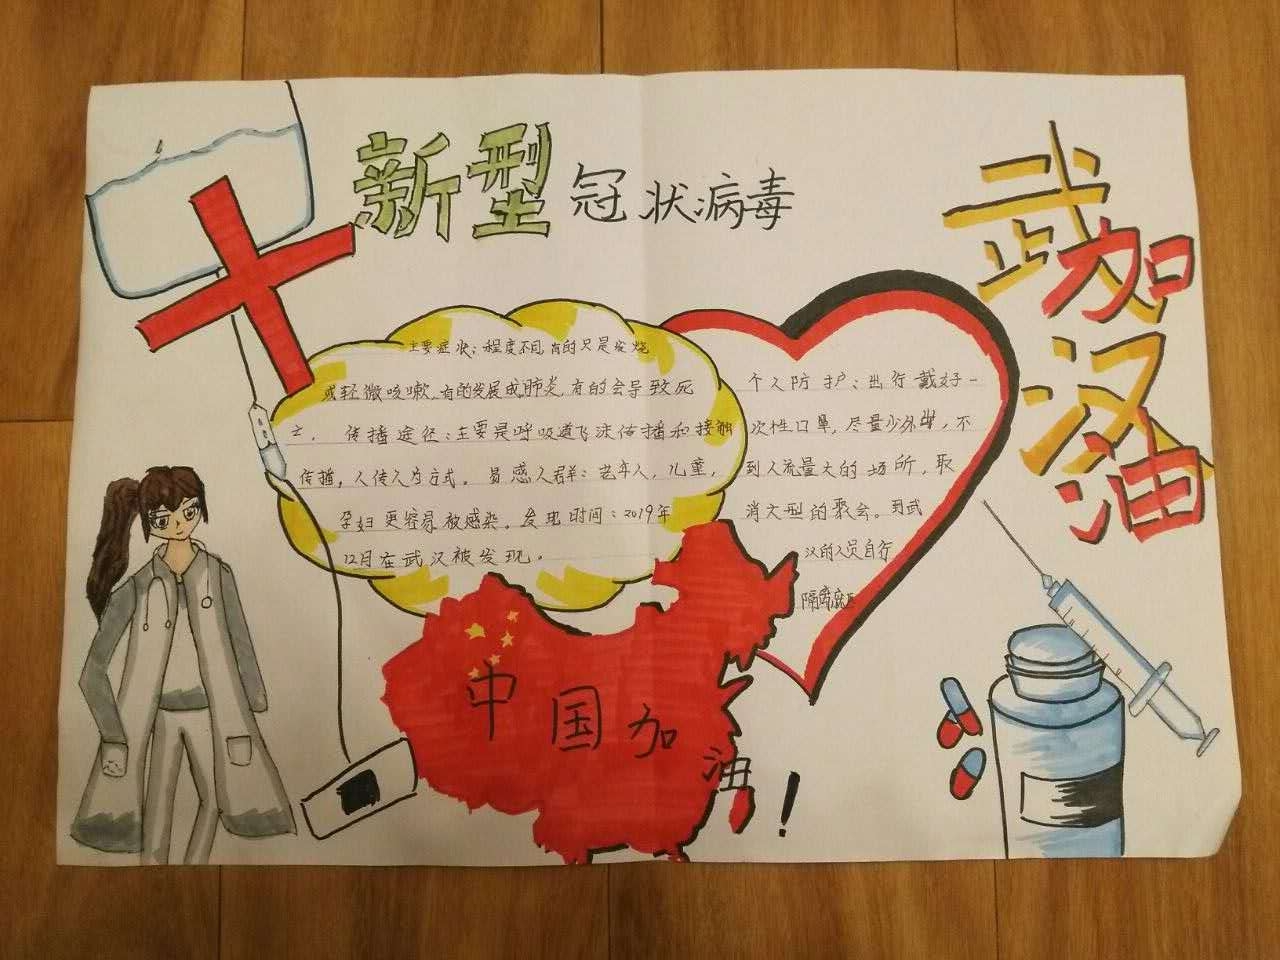 新型冠状病毒
武汉
加油
主要症状：程度不同，有的只是发烧
或轻微咳嗽，有的发展成肺炎，有的会导致死
亡． 传播途径：主要是呼吸道飞沫传播和接触
传播，人传人为方式。易感人群：老年人，儿童，
孕妇更容易被感染。发电时间：2019年
12月在武汉被发现。
个人防护：出行戴好一
次性口罩，尽量少外出，不
到人流量大的场所，取
消大型的聚会。到武
汉的人员自行
隔离
中国加油！